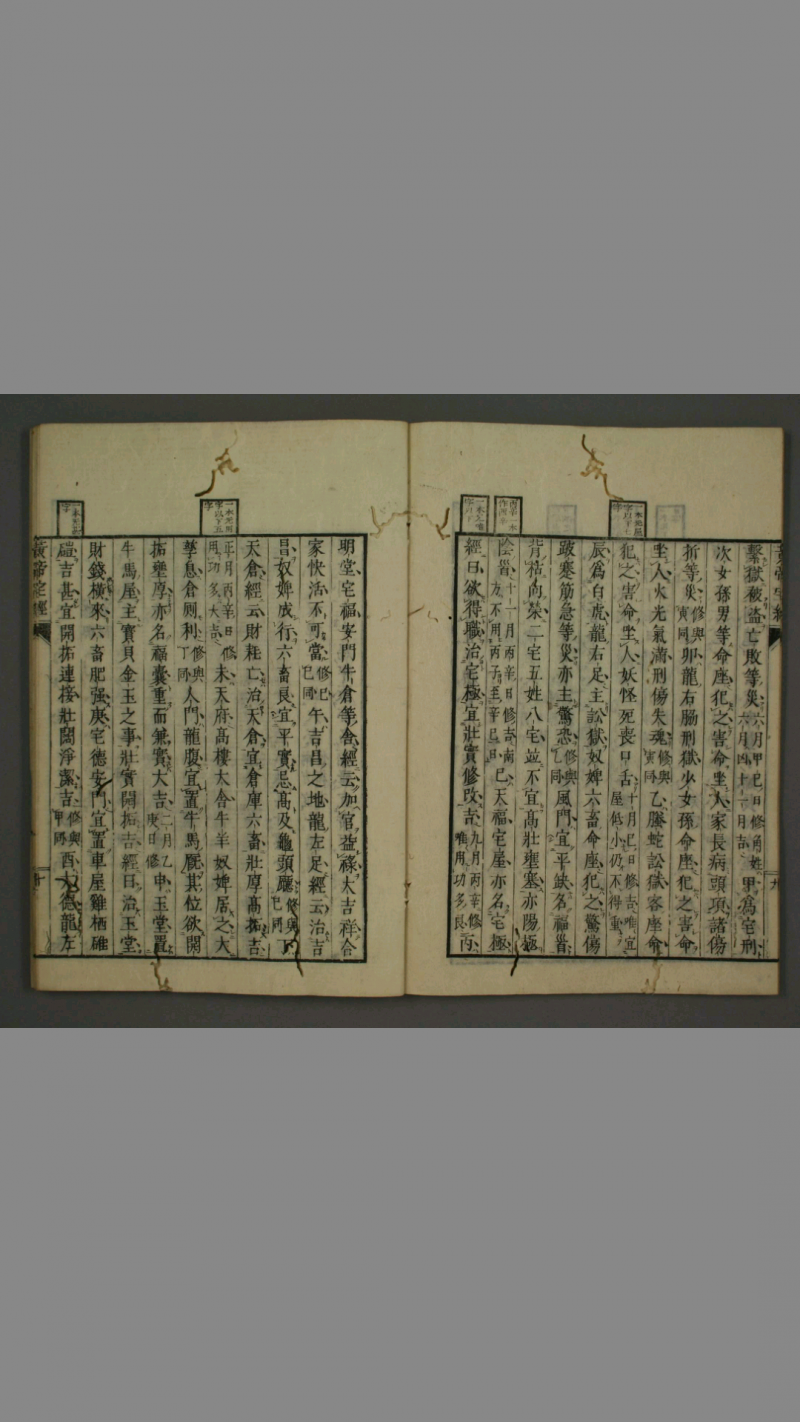 繫獄破盜亡敗等災六月甲巳日修角姓六月四十一月吉甲爲宅刑
次女孫男等命座犯之害命坐人家長病頭項諸傷
折等災修與寅同卯龍右脇刑獄少女孫命座犯之害命
坐人火光氣滿刑傷失魂修與寅同乙螣蛇訟獄客座命
犯之害命坐人妖怪死喪口舌十月巳日修吉唯宜屋低小仍不得重
辰爲白虎龍右足主訟獄奴婢六畜命座犯之驚傷
跛蹇筋急等災亦主驚恐修與乙同風門宜平缺名福首
背枯向榮二宅五姓八宅並不宜高壯壅塞亦陽極
陰首十一月丙辛日修吉南方不用丙子至辛巳日巳天福宅屋亦名宅極
經曰欲得職治宅極宜壯實修改吉九月丙辛修唯用功多良丙
明堂宅福安門牛倉等舍經云加官益祿大吉祥合
家快活不可當修與巳同午吉昌之地龍左足經云治吉
昌奴婢成行六畜良宜平實忌高及龜頭廳修與巳同丁
天倉經云財耗亡治天倉宜倉庫六畜壯厚高拓吉
正月丙辛日修用功多大吉未天府高樓大舍牛羊奴婢居之大
孳息倉廁利修與丁同人門龍腹宜置牛馬廐其位欲開
拓壅厚亦名福囊重而兼實大吉二月乙庚日修申玉堂置
牛馬屋主寶貝金玉之事壯實開拓吉經曰治玉堂
財錢橫來六畜肥强庚宅德安門宜置車屋雞栖碓
磑吉甚宜開拓連接壯闊淨潔吉修與甲同酉德龍左
黃帝宅經